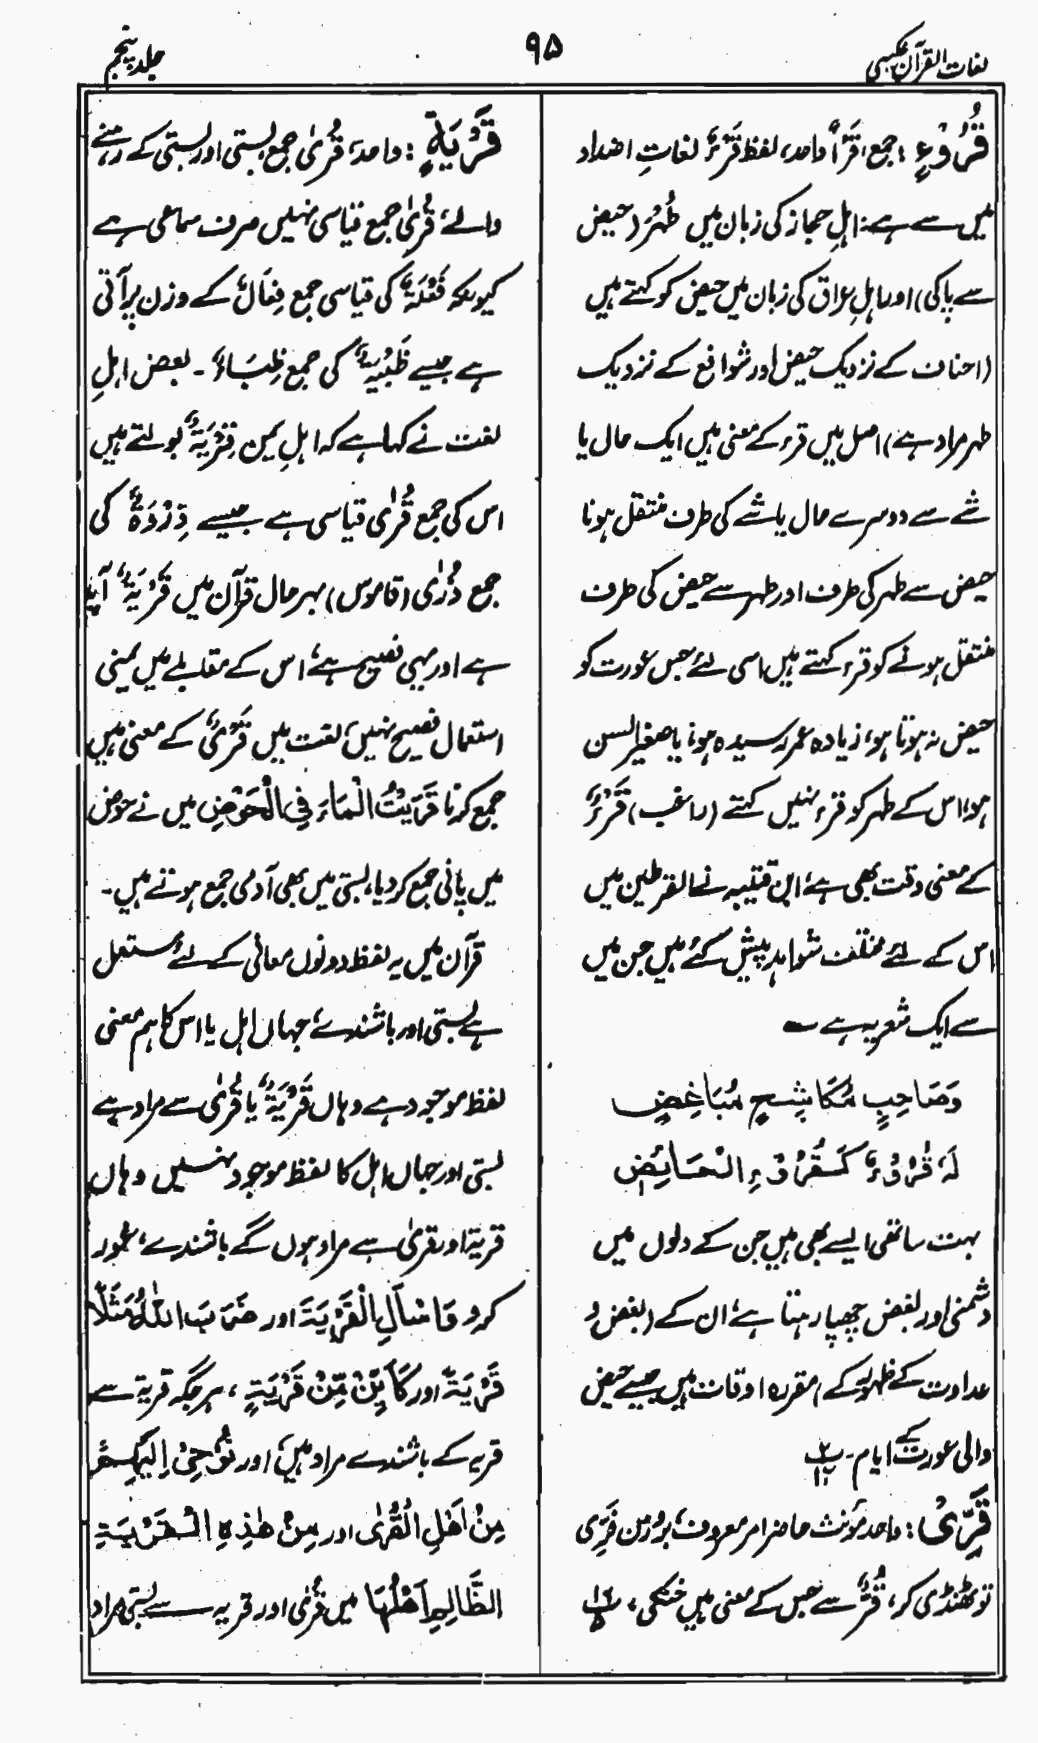 لغات القرآن عکسی
۹۵
جلد پنجم
قُرُوْءٍ: جمع، قَرْأً واحد، لفظ قَرْءٌ لغاتِ اضداد
میں سے ہے: اہلِ حجاز کی زبان میں طُہْر (حیض
سے پاکی) اور اہلِ عراق کی زبان میں حیض کو کہتے ہیں
(احناف کے نزدیک حیض اور شوافع کے نزدیک
طہر مراد ہے) اصل میں قرء کے معنی ہیں ایک حال یا
شے سے دوسرے حال یا شے کی طرف منتقل ہونا
حیض سے طہر کی طرف اور طہر سے حیض کی طرف
منتقل ہونے کو قرء کہتے ہیں، اسی لئے جس عورت کو
حیض نہ ہوتا ہو، زیادہ عمر رسیدہ ہو، یا صغیر السن
ہو، اس کے طہر کو قرء نہیں کہتے (راغب) قَرْءٌ
کے معنی وقت بھی ہے، ابن قتیبہ نے القرطین میں
اس کے لئے مختلف شواہد پیش کئے ہیں جن میں
سے ایک شعر یہ ہے
وَصَاحِبٍ مُکَاشِحٍ مُبَاغِضٍ
لَہٗ قُرُوْءٌ کَقُرُوْءِ الْحَائِضِ
بہت ساتھی ایسے بھی ہیں جن کے دلوں میں
دشمنی اور بغض چھپا رہتا ہے، ان کے (بغض و
عداوت کے ظہور کے) مقررہ اوقات ہیں جیسے حیض
والی عورت کے ایام۔
قَرِّیْ: واحد مؤنث حاضر امر معروف، بروزن فَرِّی
تو ٹھنڈی کر، قُرٌّ سے جس کے معنی ہیں خنکی،
قَرْیَۃٍ: واحد، قُریٰ جمع، بستی اور بستی کے رہنے
والے، قُریٰ جمع قیاسی نہیں صرف سماعی ہے
کیونکہ فَعْلَۃٌ کی قیاسی جمع فِعَالٌ کے وزن پر آتی
ہے جیسے ظَبْیَۃٌ کی جمع ظِبَاءٌ۔ بعض اہلِ
لغت نے کہا ہے کہ اہلِ یمن قِرْیَۃٌ بولتے ہیں
اس کی جمع قُریٰ قیاسی ہے جیسے ذِرْوَۃٌ کی
جمع ذُرٰی (قاموس) بہر حال قرآن میں قَرْیَۃٌ آیا
ہے اور یہی فصیح ہے، اس کے مقابلے میں یمنی
استعمال فصیح نہیں، لغت میں قَرْیٌ کے معنی ہیں
جمع کرنا قَرَیْتُ الْمَاءَ فِی الْحَوْضِ میں نے حوض
میں پانی جمع کر دیا، بستی میں بھی آدمی جمع ہوتے ہیں۔
قرآن میں یہ لفظ دونوں معانی کے لئے مستعمل
ہے بستی اور باشندے، جہاں اہل یا اس کا ہم معنی
لفظ موجود ہے وہاں قَرْیَۃٌ یا قُریٰ سے مراد ہے
بستی اور جہاں اہل کا لفظ موجود نہیں وہاں
قریۃ اور قریٰ سے مراد ہوں گے باشندے، غور
کرو وَاسْاَلِ الْقَرْیَۃَ اور ضَرَبَ اللّٰہُ مَثَلًا
قَرْیَۃً اور کَاَیِّنْ مِّنْ قَرْیَۃٍ، ہر جگہ قریۃ سے
قریہ کے باشندے مراد ہیں، اور نُوْحِیْ اِلَیْہِمْ
مِنْ اَھْلِ الْقُرٰی اور مِنْ ھٰذِہِ الْقَرْیَۃِ
الظَّالِمِ اَھْلُہَا میں قُریٰ اور قریہ سے بستی مراد